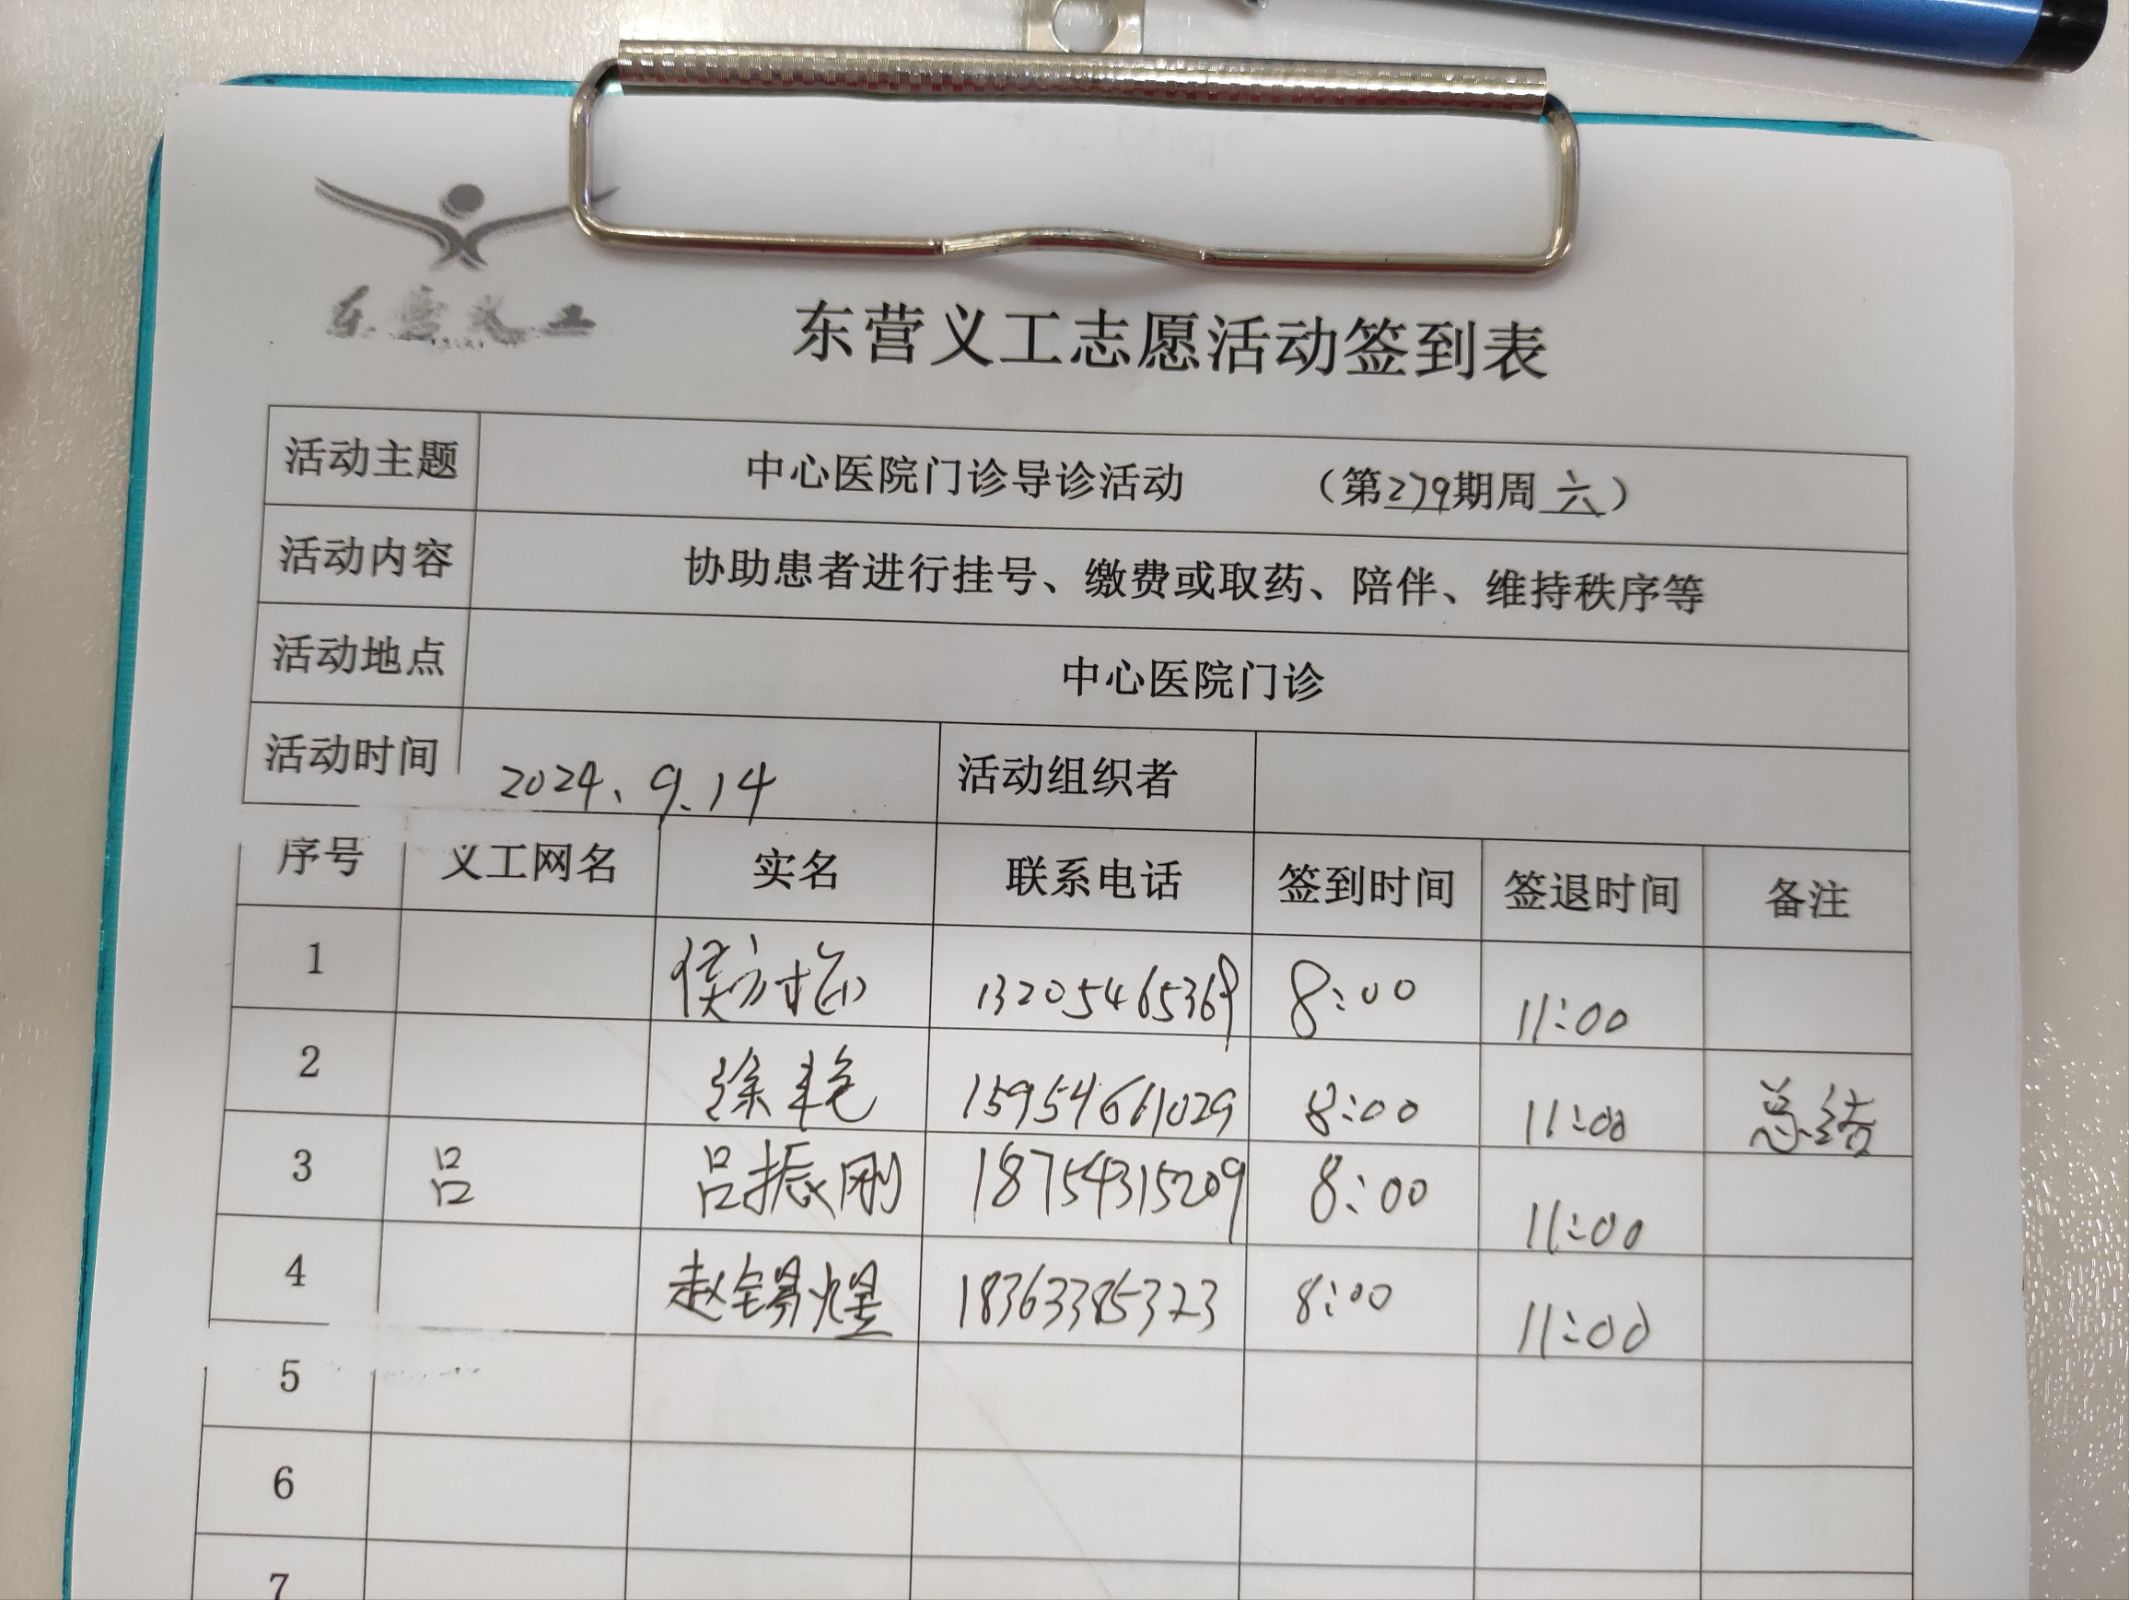 东营义工
东营义工志愿活动签到表
活动主题 中心医院门诊导诊活动 （第279期周六）
活动内容 协助患者进行挂号、缴费或取药、陪伴、维持秩序等
活动地点 中心医院门诊
活动时间 2024、9.14 活动组织者
序号 义工网名 实名 联系电话 签到时间 签退时间 备注
1 侯方梅 13205465369 8:00 11:00
2 徐艳 15954661029 8:00 11:00 总结
3 吕 吕振刚 18754315209 8:00 11:00
4 赵锡煜 18363385323 8:00 11:00
5
6
7